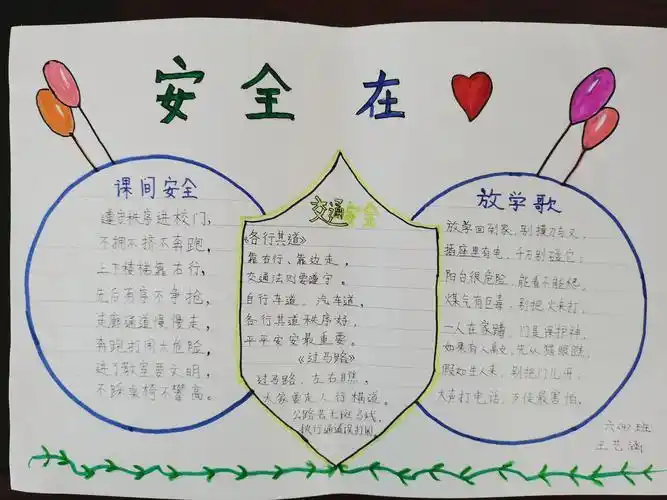 安全在
课间安全
遵守秩序进校门，
不拥不挤不奔跑，
上下楼梯靠右行，
先后有序不争抢，
走廊通道慢慢走，
奔跑打闹太危险，
进了教室要文明，
不踩桌椅不攀高。
交通安全
《各行其道》
靠右行、靠边走，
交通法则要遵守。
自行车道、汽车道，
各行其道秩序好，
平平安安最重要。
《过马路》
过马路，左右瞧，
大家要走人行横道。
公路若无斑马线，
放学歌
放学回到家，别摸刀与叉，
插座里有电，千万别碰它；
阳台很危险，能看不能爬，
煤气有巨毒，别把火来打，
一人在家，门是保护神，
如果有人，先从猫眼瞧，
假如生人来，别把门儿开，
大声打电话，歹徒最害怕。
六(4)班
王艺涵